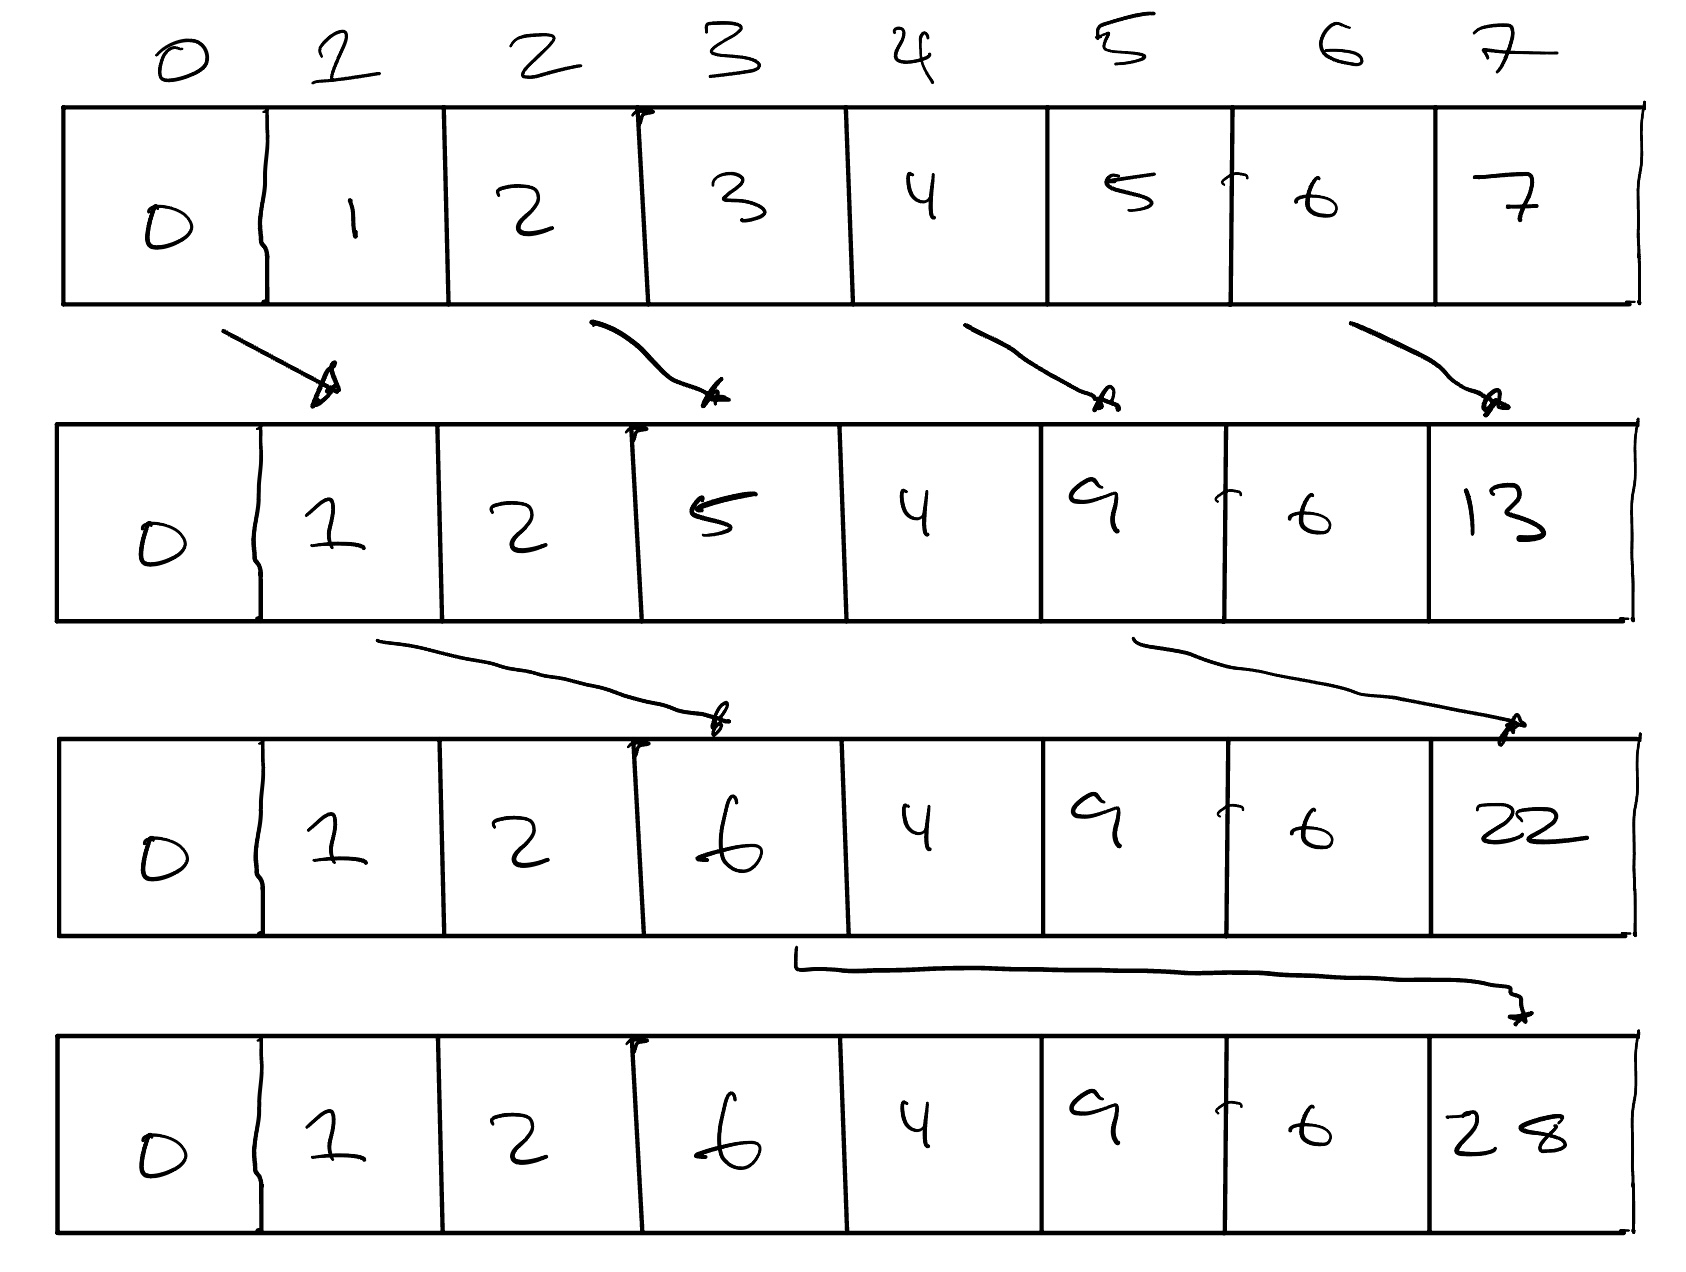 0 1 2 3 4 5 6 7
0 1 2 3 4 5 6 7
0 1 2 5 4 9 6 13
0 1 2 6 4 9 6 22
0 1 2 6 4 9 6 28